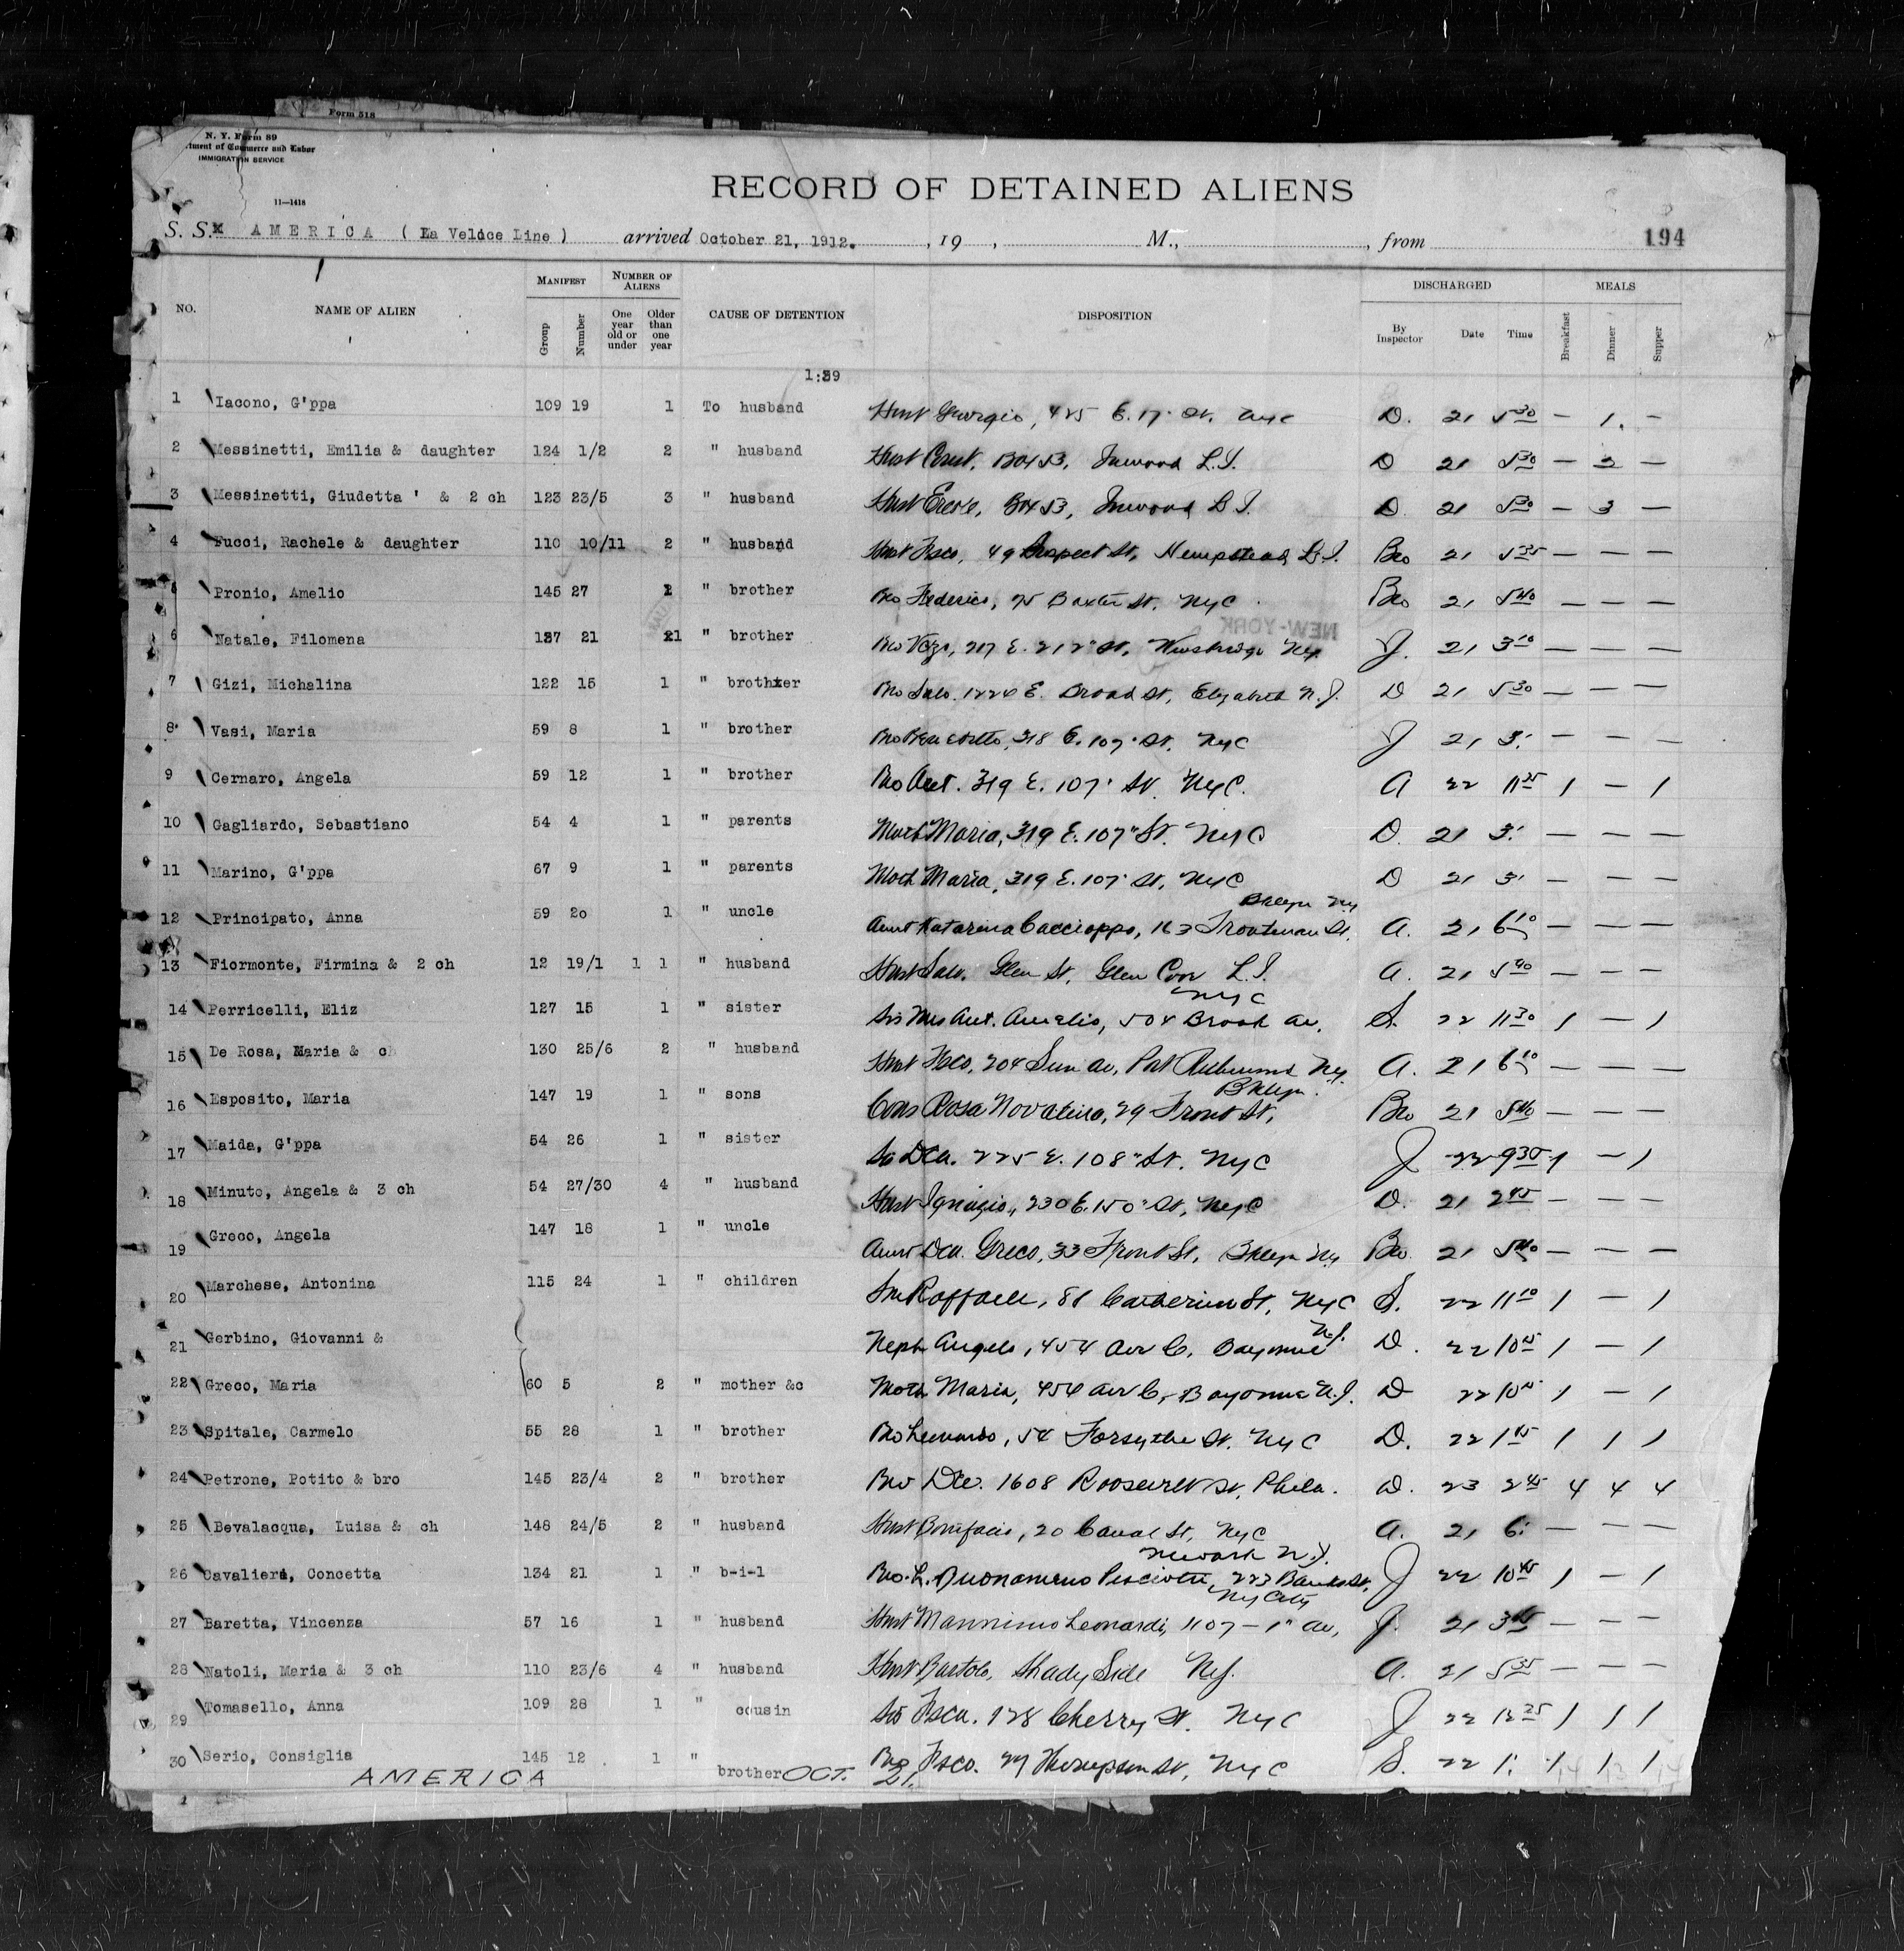 Form 518
N. Y. Form 89
tment of Commerce and Labor
IMMIGRATION SERVICE
11—1418
RECORD OF DETAINED ALIENS
S. S. AMERICA ( La Veloce Line ) arrived October 21, 1912. , 19 , M., , from 194
NO. NAME OF ALIEN MANIFEST Group Number NUMBER OF ALIENS One year old or under Older than one year CAUSE OF DETENTION DISPOSITION DISCHARGED By Inspector Date Time MEALS Breakfast Dinner Supper
1 Iacono, G'ppa 109 19 1 To husband Husb Giorgio, 425 E. 17" St. NyC D. 21 5 30 — 1. —
2 Messinetti, Emilia & daughter 124 1/2 2 " husband Husb Box 53, Inwood L.I. D 21 5 30 — 2 —
3 Messinetti, Giudetta ' & 2 ch 123 23/5 3 " husband Husb Box 53, Inwood L.I. D. 21 5 30 — 3 —
4 Fucci, Rachele & daughter 110 10/11 2 " husband Husb Fsco, 49 Prospect St, Hempstead L.I. Bro 21 5 35 — — —
5 Pronio, Amelio 145 27 " brother Bro Federico, 75 Baxter St. NyC Bro 21 5 40 — — —
6 Natale, Filomena 137 21 1 " brother Bro 217 E. 212" St, Ny J. 21 3 10 — — —
7 Gizi, Michalina 122 15 1 " brother Bro Salv. 1224 E. Broad St, Elizabeth N.J. D 21 5 30 — — —
8 Vasi, Maria 59 8 1 " brother Bro 318 E. 107" St. NyC J 21 3. — — —
9 Cernaro, Angela 59 12 1 " brother Bro Ant. 319 E. 107" St. NyC. A 22 11 25 1 — 1
10 Gagliardo, Sebastiano 54 4 1 " parents Moth Maria, 319 E. 107" St. NyC D. 21 3. — — —
11 Marino, G'ppa 67 9 1 " parents Moth Maria, 319 E. 107" St, NyC D 21 3. — — —
Bklyn Ny
12 Principato, Anna 59 20 1 " uncle Aunt Katarina Cacciappo, 163 Troutman St. A. 21 6 10 — — —
13 Fiormonte, Firmina & 2 ch 12 19/1 1 1 " husband Husb Salv. Glen St. Glen Cove L.I. A. 21 5 40 — — —
NyC
14 Perricelli, Eliz 127 15 1 " sister Sis Mrs Ant. Amelio, 504 Brook Av. S. 22 11 30 1 — 1
15 De Rosa, Maria & ch 130 25/6 2 " husband Husb Fsco, 204 Av, Port Ny. A. 21 6 10 — — —
Bklyn.
16 Esposito, Maria 147 19 1 " sons Cous Rosa 29 Front St, Bro 21 5 40 — — —
17 Maida, G'ppa 54 26 1 " sister Sis 225 E. 108" St. NyC J 22 9 30 1 — 1
18 Minuto, Angela & 3 ch 54 27/30 4 " husband Husb Ignazio, 230 E. 150" St, NyC D. 21 2 45 — — —
19 Greco, Angela 147 18 1 " uncle Aunt Greco, 33 Front St, Bklyn Ny Bro. 21 5 40 — — —
20 Marchese, Antonina 115 24 1 " children Son Raffaele, 81 Catherine St, NyC S. 22 11 10 1 — 1
21 Gerbino, Giovanni & Neph Angelo, 454 Ave C, Bayonne N.J. D. 22 10 45 1 — 1
22 Greco, Maria 60 5 2 " mother &c Moth Maria, 454 Ave C, Bayonne N.J. D 22 10 45 1 — 1
23 Spitale, Carmelo 55 28 1 " brother Bro Leonardo, 54 Forsythe St. NyC D. 22 1 45 1 1 1
24 Petrone, Potito & bro 145 23/4 2 " brother Bro 1608 Roosevelt St, Phila. D. 23 2 45 4 4 4
25 Bevalacqua, Luisa & ch 148 24/5 2 " husband Husb Bonifacio, 20 Canal St, NyC A. 21 6. — — —
Newark N.J.
26 Cavaliera, Concetta 134 21 1 " b-i-l Bro. L. 223 Banks St, J 22 10 45 1 — 1
Ny City
27 Baretta, Vincenza 57 16 1 " husband Husb Leonardi, 1107 — 1" Av, J. 21 — — —
28 Natoli, Maria & 3 ch 110 23/6 4 " husband Husb Bartolo, Shady Side NJ. A. 21 5 35 — — —
29 Tomasello, Anna 109 28 1 " cousin Sis Fsca. 128 Cherry St. NyC J 22 12 25 1 1 1
30 Serio, Consiglia 145 12 1 " brother Bro Fsco. 27 Thompson St, NyC S. 22 1. 1 1 1
AMERICA OCT. 21.
NEW-YORK